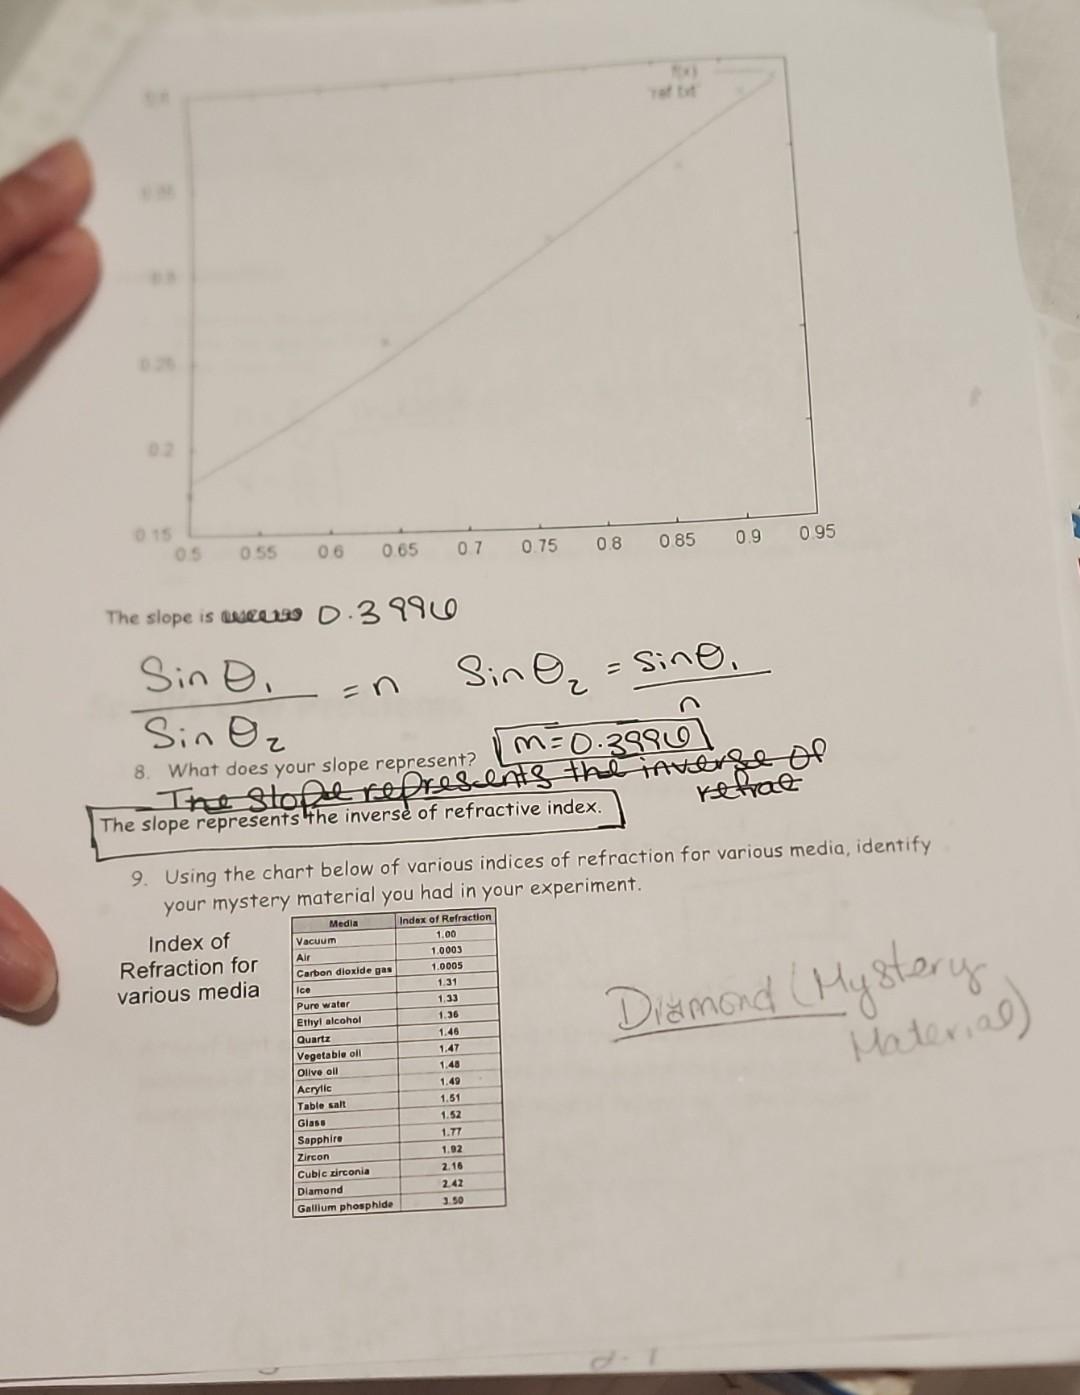 f(x)
"ref.txt"
0.4
0.35
0.3
0.25
0.2
0.15
0.5 0.55 0.6 0.65 0.7 0.75 0.8 0.85 0.9 0.95
The slope is 0.3996
Sin θ₁ / Sin θ₂ = n Sin θ₂ = Sin θ₁ / n
m = 0.3996
8. What does your slope represent?
The slope represents the inverse of
refrac
The slope represents the inverse of refractive index.
9. Using the chart below of various indices of refraction for various media, identify
your mystery material you had in your experiment.
Index of
Refraction for
various media
Media Index of Refraction
Vacuum 1.00
Air 1.0003
Carbon dioxide gas 1.0005
Ice 1.31
Pure water 1.33
Ethyl alcohol 1.36
Quartz 1.46
Vegetable oil 1.47
Olive oil 1.48
Acrylic 1.49
Table salt 1.51
Glass 1.52
Sapphire 1.77
Zircon 1.92
Cubic zirconia 2.16
Diamond 2.42
Gallium phosphide 3.50
Diamond (Mystery
Material)